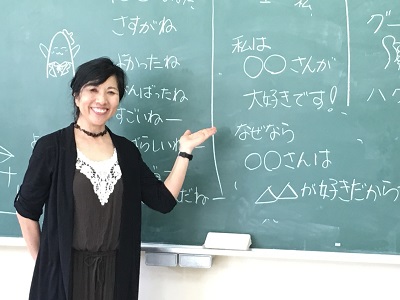 さすがね
よかったね
がんばったね
すごいねー
らしいね
だねー
私は
○○さんが
大好きです!
なぜなら
○○さんは
△△が好きだから
グー
ハグ